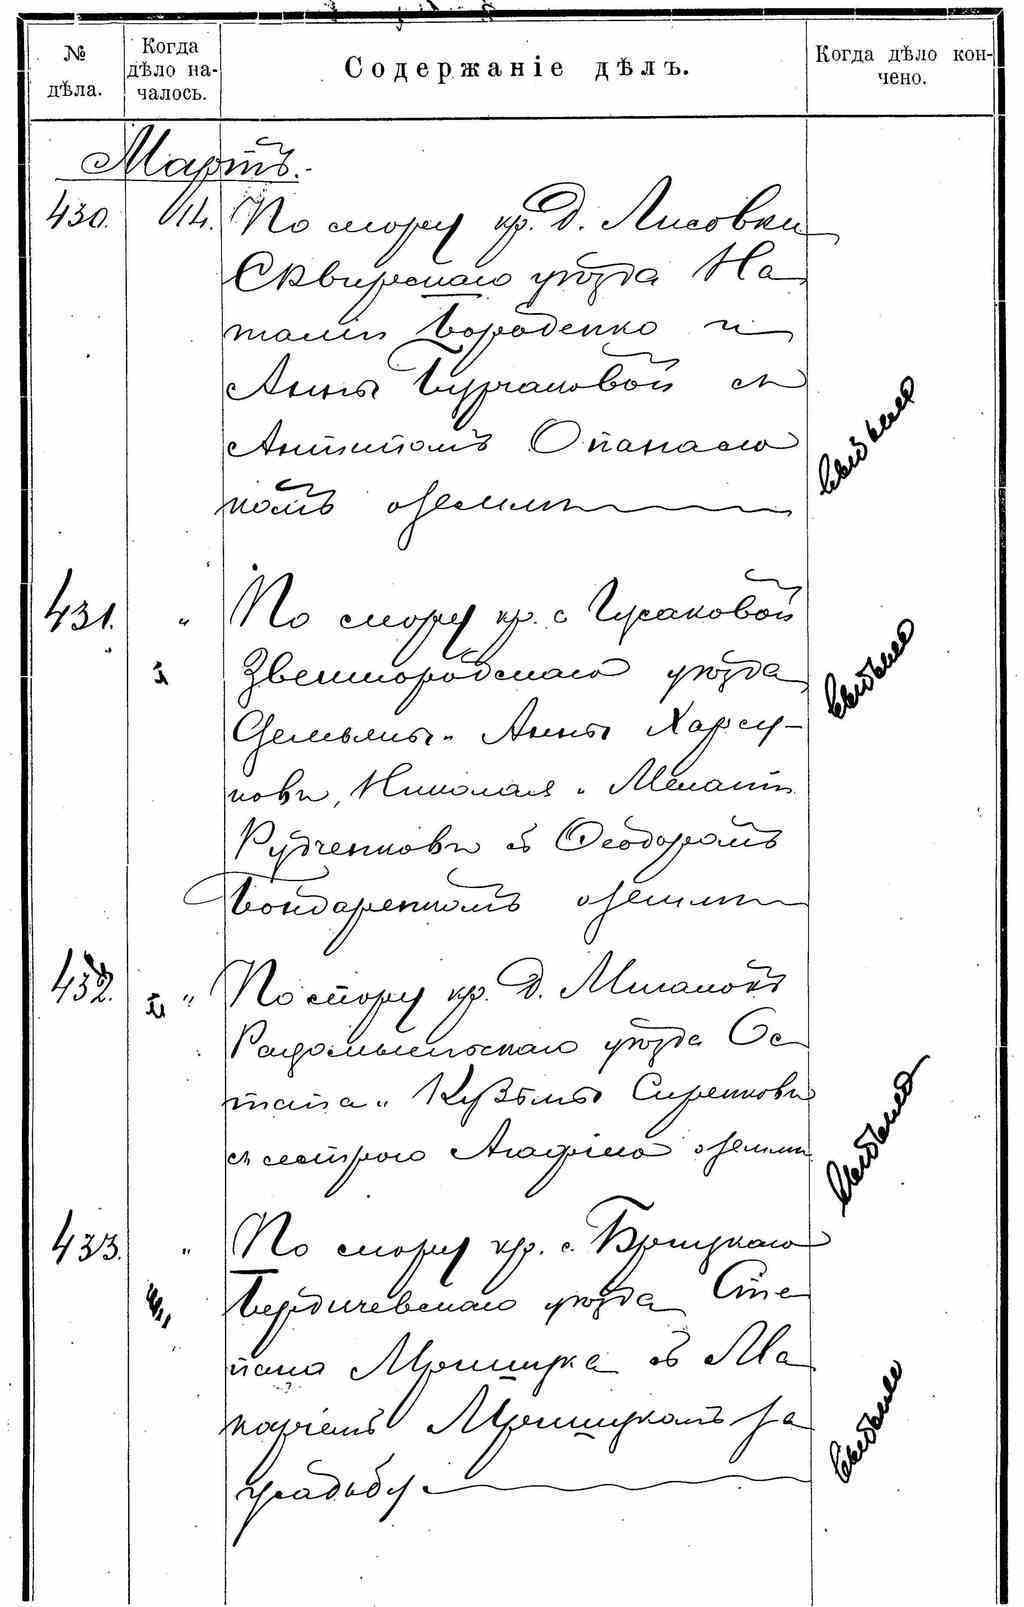 № дѣла.
Когда дѣло на-
чалось.
Содержаніе дѣлъ.
Когда дѣло кон-
чено.
Мартъ.
430. 14. По спору кр. д. Лисовки
Сквирскаго уѣзда На
таліи Бороденко и
Анны Бурчаковой съ
Антипомъ Опанасю
комъ о земли
431. " По спору кр. с. Гусаковой
Звенигородскаго уѣзда
Демьяна " Анны Харсу-
ковы, Николая " Меланіи
Рудченковы съ Ѳеодоромъ
Бондаренкомъ о земли
432. " По спору кр. д.
Радомысльскаго уѣзда Ос
тапа " Кузьмы Сиренковы
съ сестрою Агафіею о земли
433. " По спору кр. с.
Бердичевскаго уѣзда Сте
пана съ Ма
каріемъ за
усадьбу